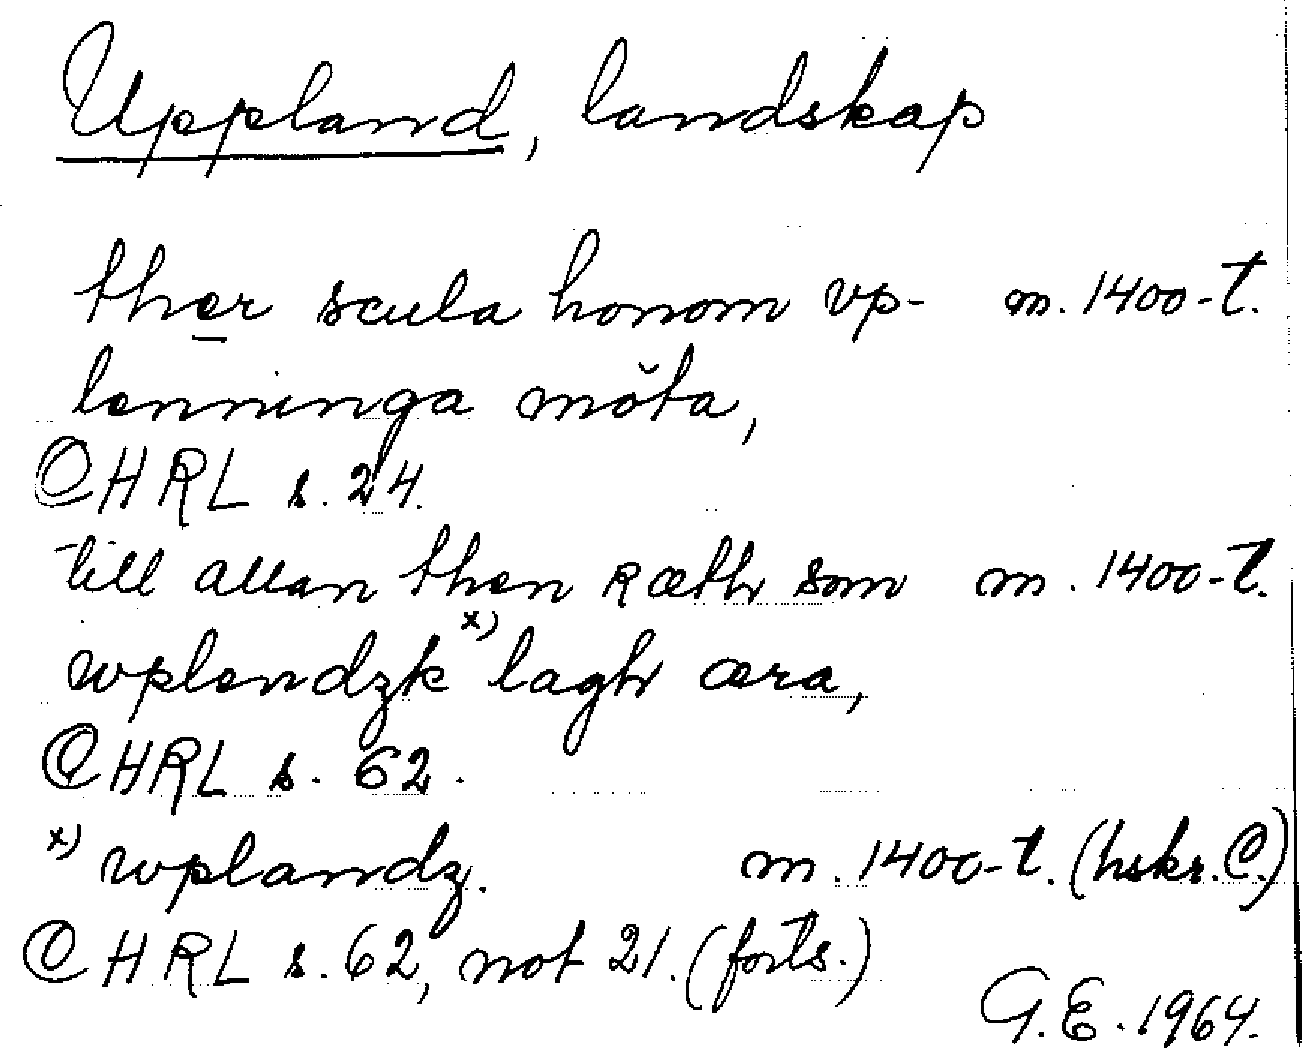 Uppland, landskap
ther scula honom vp- m. 1400-t.
lenninga mǒta,
CHRL s. 24.
till allan then Ræth som m. 1400-t.
wplendzk x) lagh æra,
CHRL s. 62.
x) wplandz. m. 1400-t. (hskr. C.)
CHRL s. 62, not 21. (forts.)
G.E. 1964.